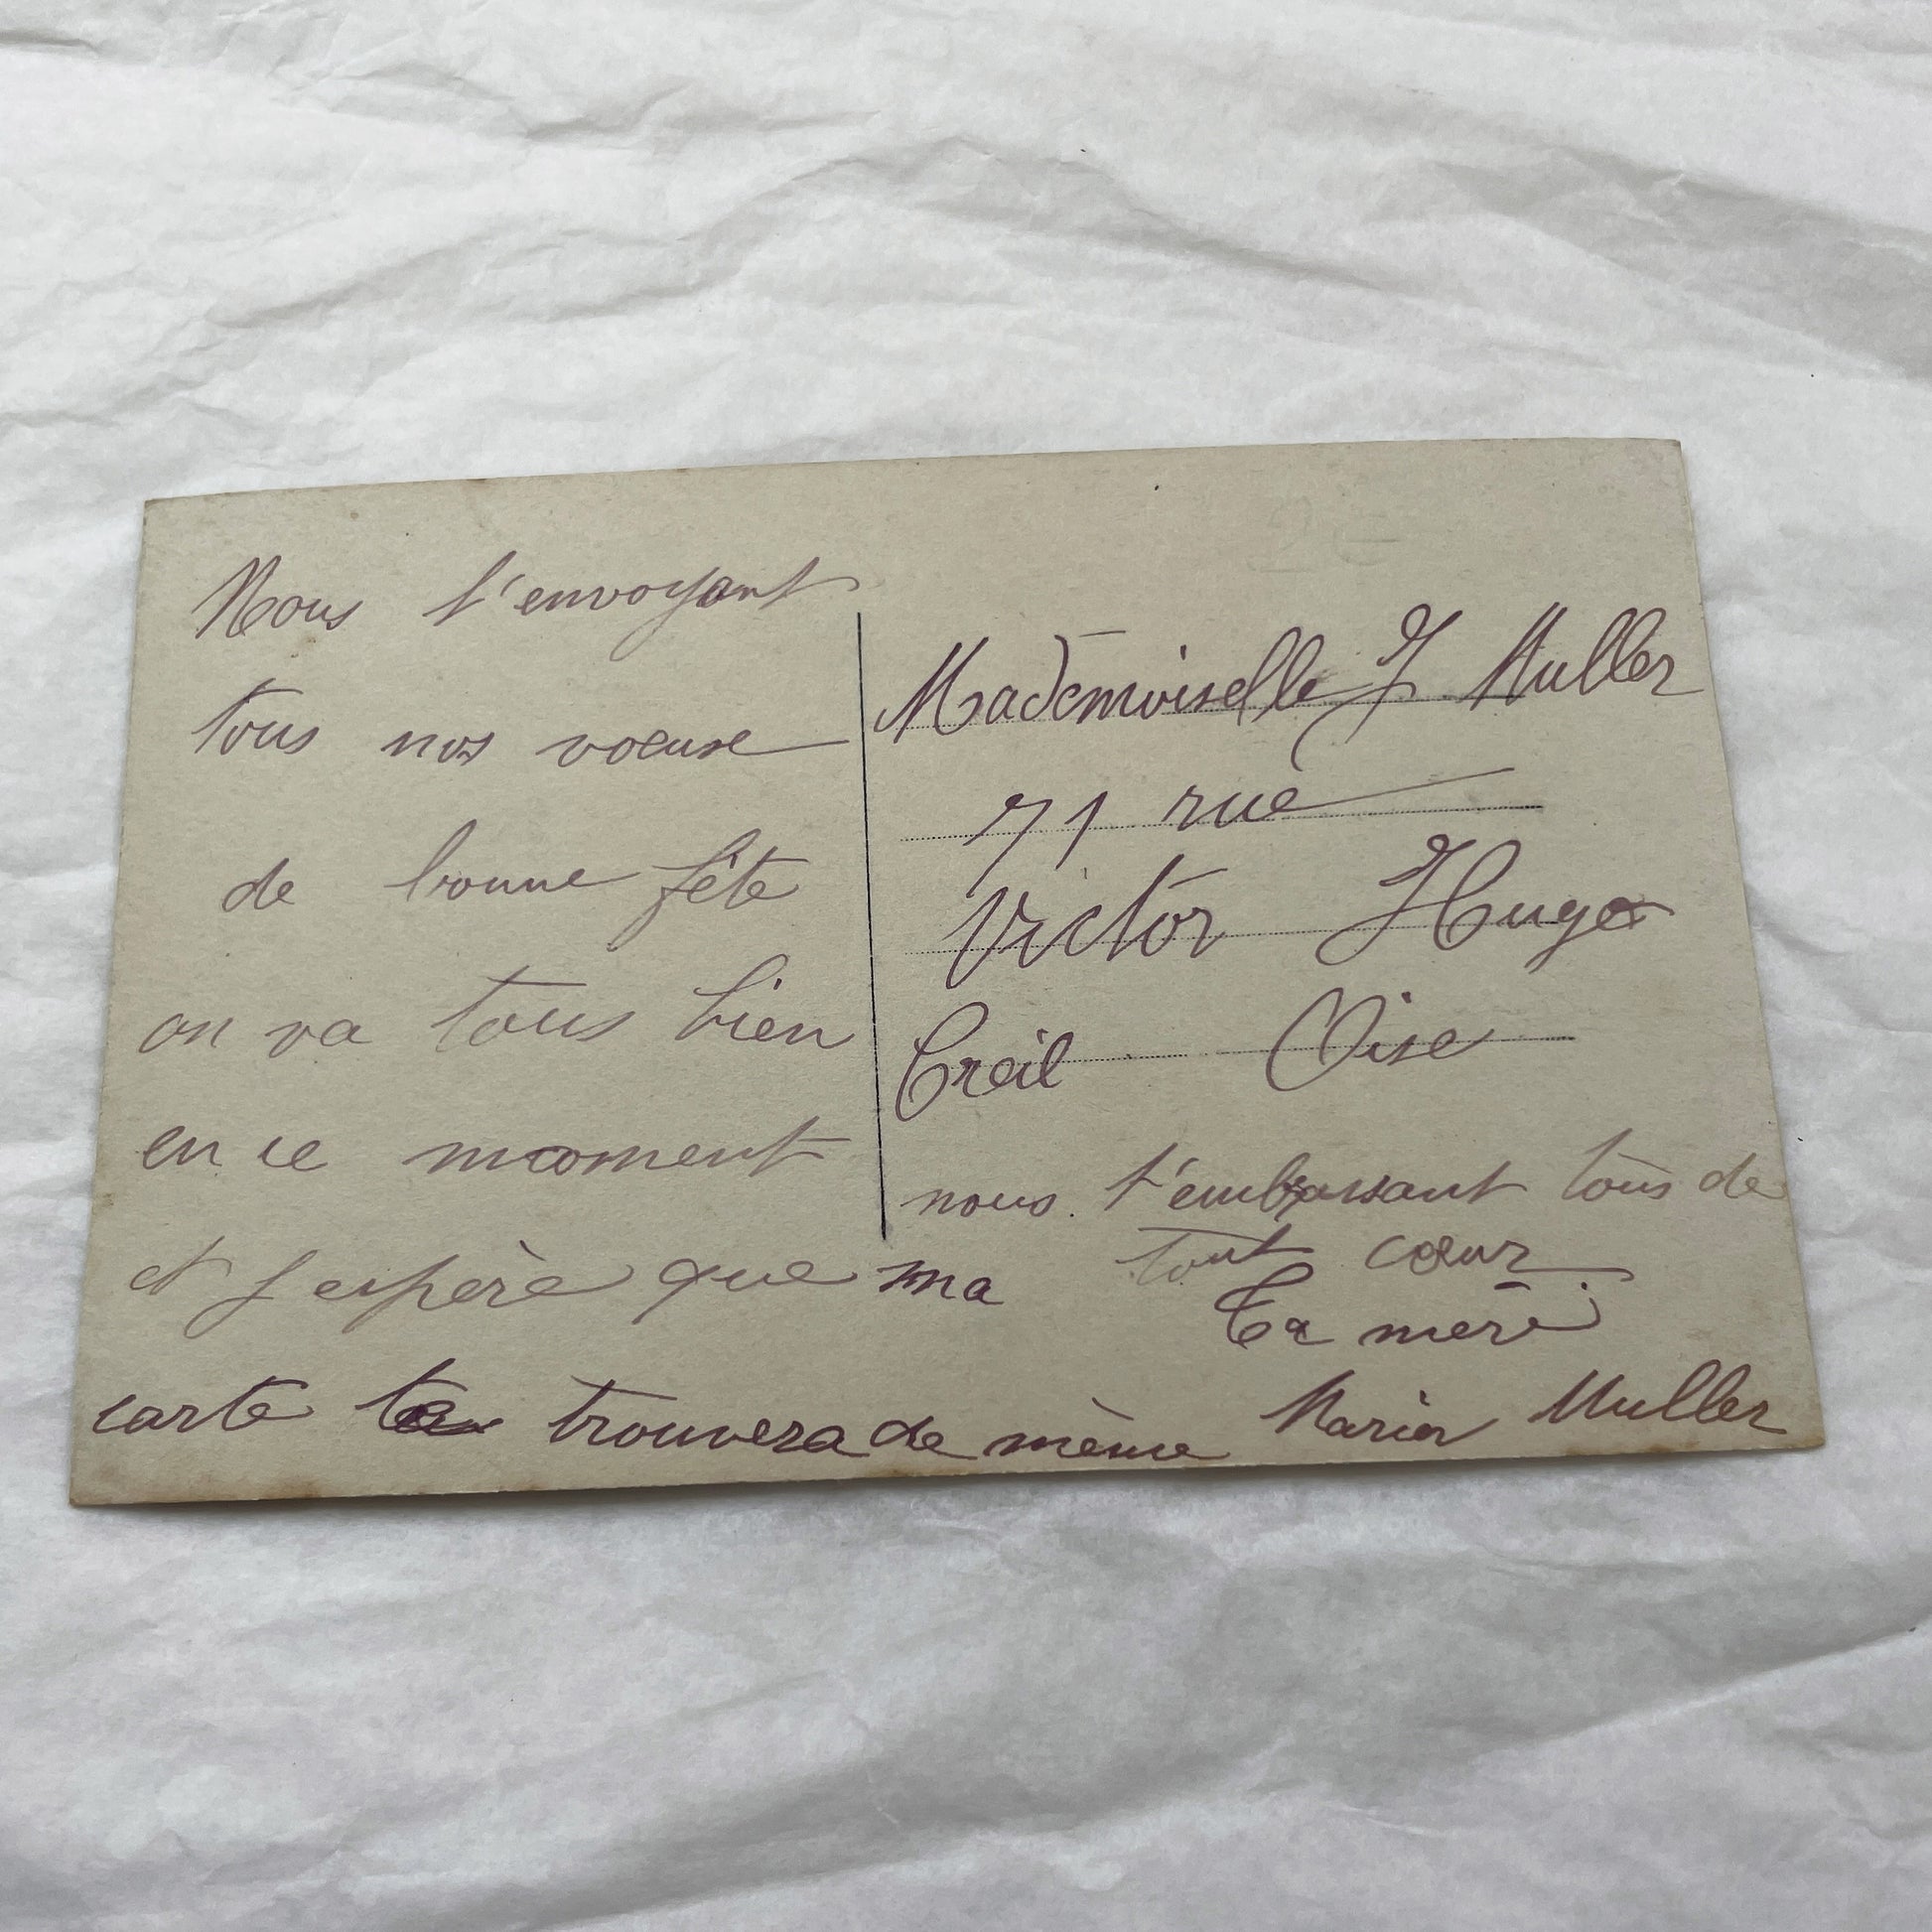 Nous t'envoyant
tous nos voeuxe
de bonne fête
on va tous bien
en ce moment
et j espère que ma
carte te trouvera de même
Mademoiselle J Muller
71 rue
Victor Hugo
Creil Oise
nous t'embrassant tous de
tout cœur
Ta mère
Muller